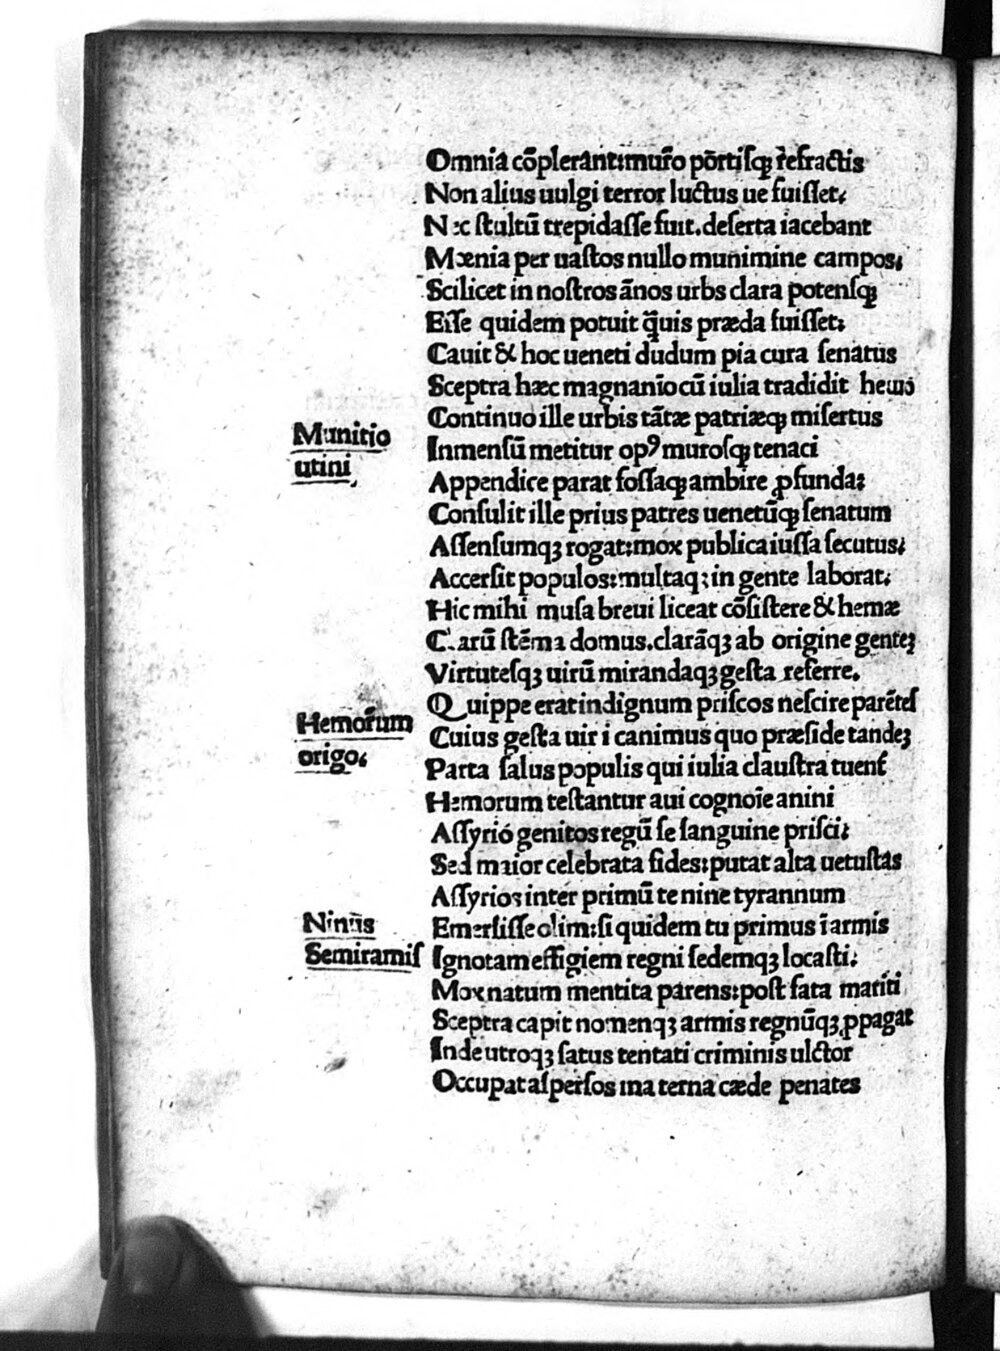 Omnia cōplerantimuro pōrtiſqꝫ refractis
Non alius uulgi terror luctus ue fuiſſet.
Nec ſtultū trepidaſſe fuit. deſerta iacebant
Mœnia per uaſtos nullo munimine campos.
Scilicet in noſtros ānos urbs clara potenſqꝫ
Eiſſe quidem potuit q̄uis præda fuiſſet:
Cauit & hoc ueneti dudum pia cura ſenatus
Sceptra hæc magnanīo cū iulia tradidit hemo
Continuo ille urbis tātæ patriæqꝫ miſertus
Munitio
utini
Inmenſū metitur opꝰ muroſqꝫ tenaci
Appendice parat foſſaqꝫ ambire ꝓfunda:
Conſulit ille prius patres uenetūqꝫ ſenatum
Aſſenſumqꝫ rogat: mox publica iuſſa ſecutus.
Accerſit populos: multaqꝫ in gente laborat.
Hic mihi muſa breui liceat cōſiſtere & hemæ
Clarū ſtēma domus. clarāqꝫ ab origine genteꝫ
Virtuteſqꝫ uirū mirandaqꝫ geſta referre.
Quippe erat indignum priſcos neſcire parētes
Hemorum
origo.
Cuius geſta uiri canimus quo præſide tandeꝫ
Parta ſalus populis qui iulia clauſtra tuent᷑
Hemorum teſtantur aui cognoīe anini
Aſſyrio genitos regū ſe ſanguine priſci:
Sed maior celebrata fides: putat alta uetuſtas
Aſſyrios inter primū te nine tyrannum
Ninus
Semiramiſ
Emerſiſſe olim: ſi quidem tu primus ī armis
Ignotam effigiem regni ſedemqꝫ locaſti.
Mox natum mentita parens: poſt fata mariti
Sceptra capit nomenqꝫ armis regnūqꝫ ꝓpagat
Inde utroqꝫ ſatus tentati criminis ulctor
Occupat aſperſos ma terna cæde penates